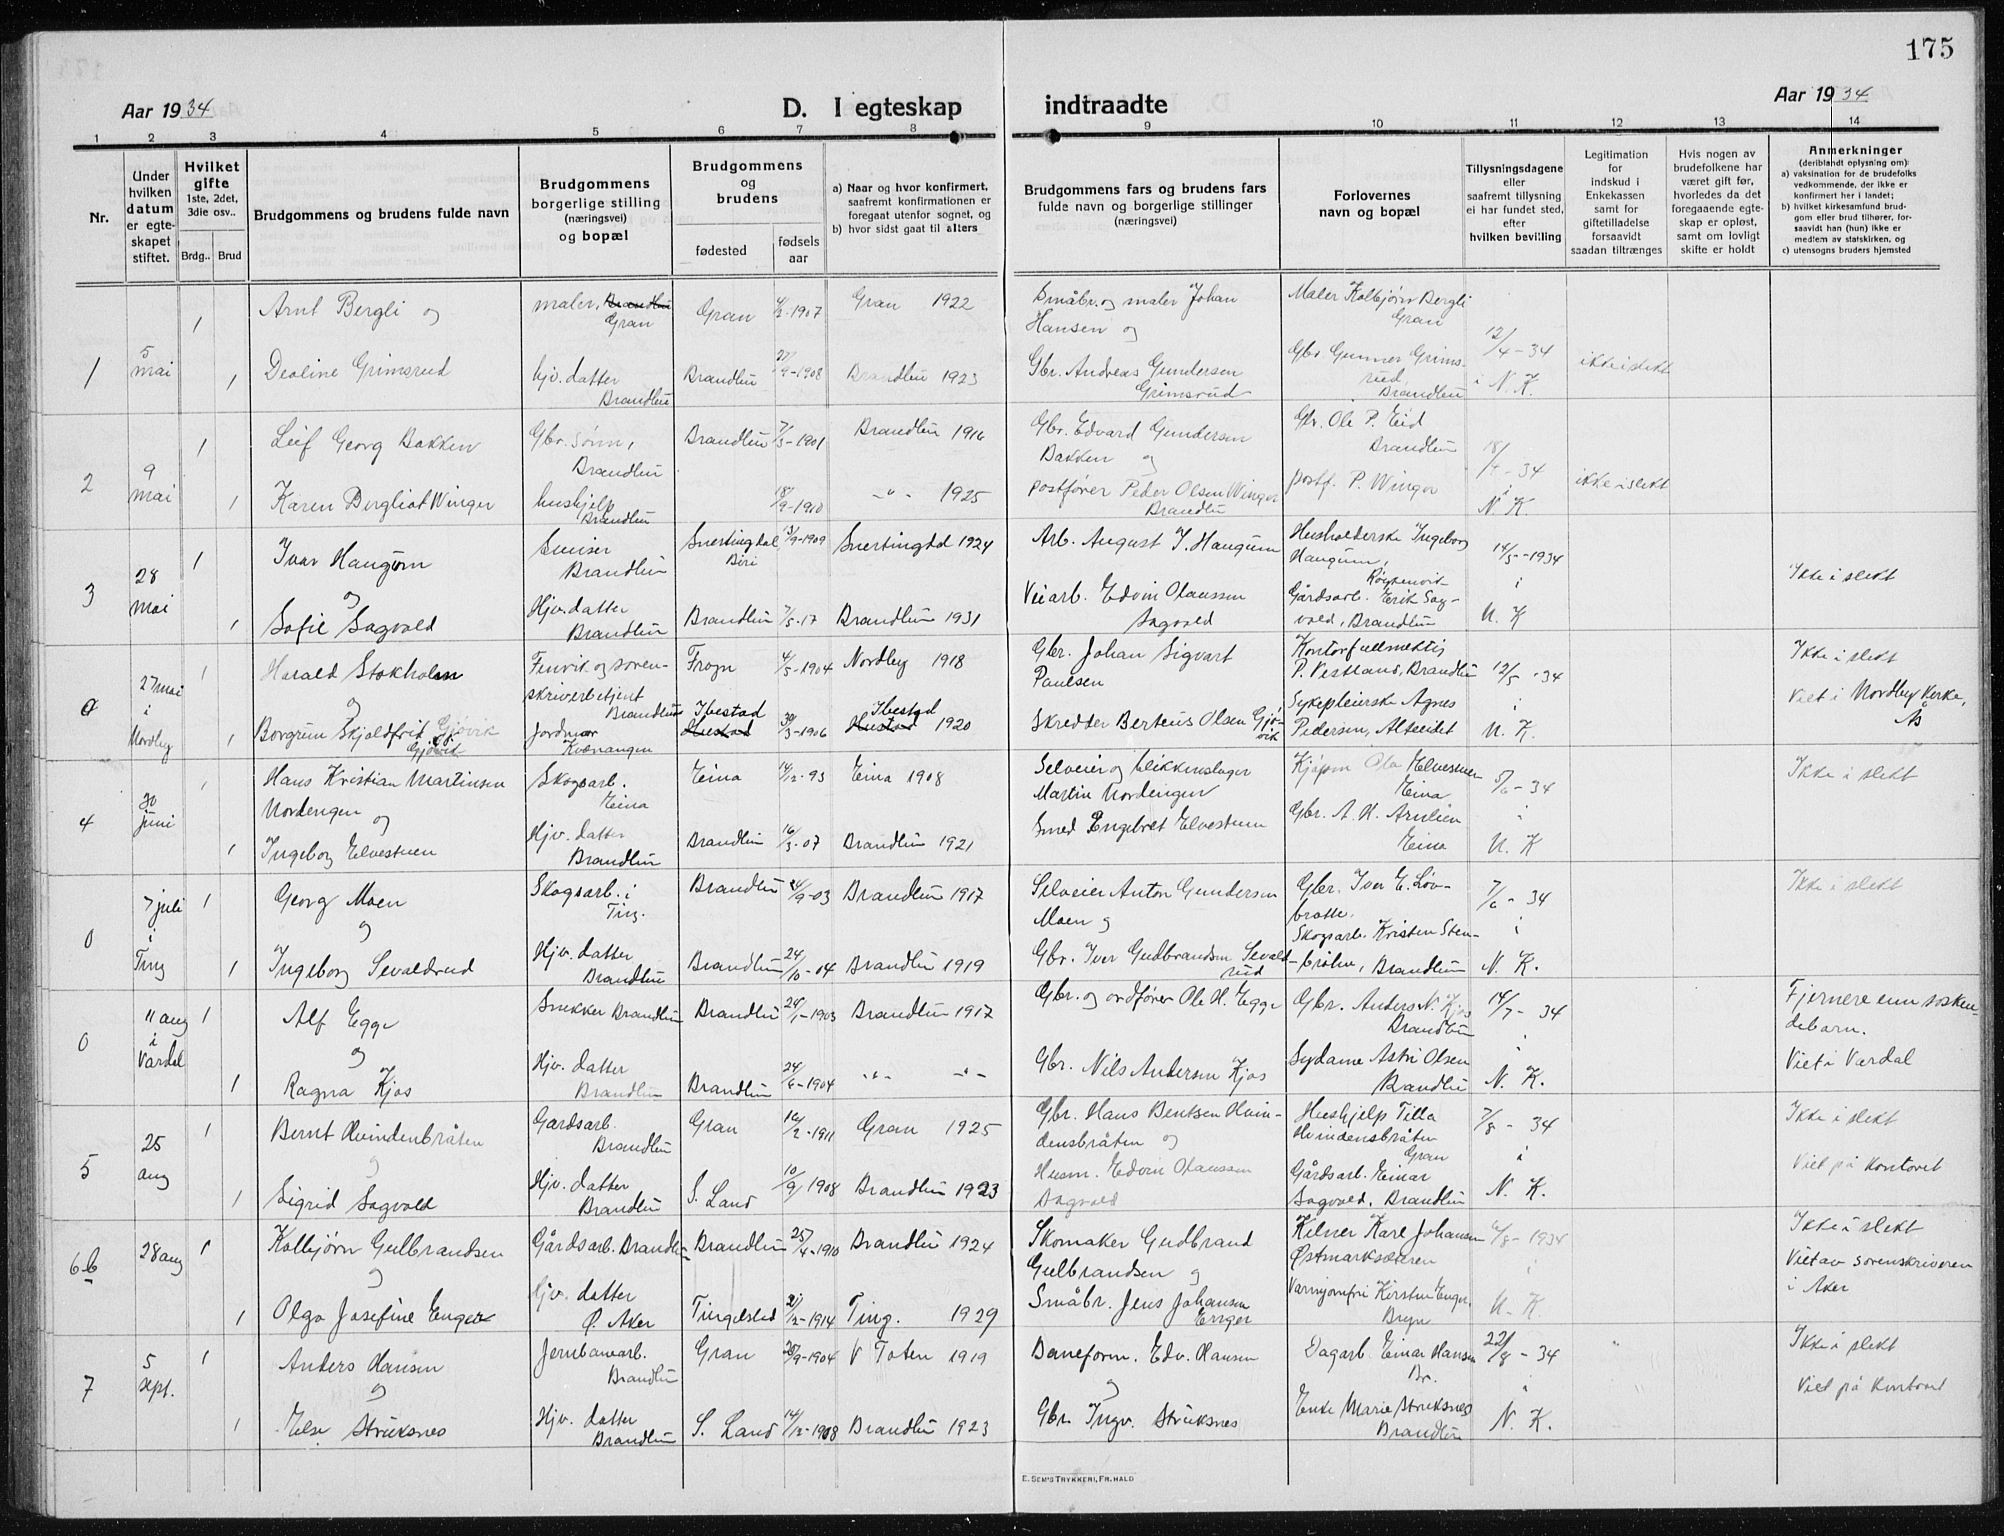 175
Aar 1934
D. I egteskap
indtraadte
Aar 1934
1 2 3 4 5 6 7 8 9 10 11 12 13 14
Nr.
Under hvilken datum er egteskapet stiftet.
Hvilket gifte 1ste, 2det, 3die osv..
Brdg.. Brud
Brudgommens og brudens fulde navn
Brudgommens borgerlige stilling (næringsvei) og bopæl
Brudgommens og brudens
fødested
fødsels aar
a) Naar og hvor konfirmert, saafremt konfirmationen er foregaat utenfor sognet, og
b) hvor sidst gaat til alters
Brudgommens fars og brudens fars fulde navn og borgerlige stillinger (næringsvei)
Forlovernes navn og bopæl
Tillysningsdagene eller saafremt tillysning ei har fundet sted, efter hvilken bevilling
Legitimation for indskud i Enkekassen samt for giftetilladelse forsaavidt saadan tiltrænges
Hvis nogen av brudefolkene har været gift før, hvorledes da det foregaaende egteskap er opløst, samt om lovligt skifte er holdt
Anmerkninger
(deriblandt oplysning om):
a) vaksination for de brudefolks vedkommende, der ikke er konfirmert her i landet;
b) hvilket kirkesamfund brudgom eller brud tilhører, forsaavidt han (hun) ikke er medlem av statskirken, og
c) utensogns bruders hjemsted
1 5 mai 1 Arnt Bergli og maler, Brandbu Gran Gran 4/2-1907 Gran 1922 Småbr. og maler Johan Hansen og Maler Kolbjørn Bergli Gran 12/4-34
1 Deoline Grimsrud hjv. datter Brandbu Brandbu 27/9-1908 Brandbu 1923 Gbr. Andreas Gundersen Grimsrud Gbr Gunner Grimsrud, Brandbu i N. K. ikke i slekt
2 9 mai 1 Leif Georg Bakken Gbr. sønn, Brandbu Brandbu 7/3-1901 Brandbu 1916 Gbr. Edvard Gundersen Bakken og Gbr. Ole P. Eid Brandbu 18/4-34
1 Karen Bergliot Winger hushjelp Brandbu 18/9-1910 -"- 1925 postfører Peder Olsen Winger Brandbu postf. P. Winger i N. K. ikke i slekt
3 28 mai 1 Ivar Haugum og Brandbu Snertingdal Biri 13/9-1909 Snertingdal 1924 Arb. August J. Haugum Husholderske Ingeborg Haugum, 14/5-1934 Ikke i slekt
1 Sofie Sagvold Hjv. datter Brandbu Brandbu 7/5-17 Brandbu 1931 Veiarb. Edvin Olaussen Sagvold Gårdsarb. Erik Sagvold, Brandbu i N. K
0 27 mai i Nordby 1 Harald Stokholm og Fenrik og sorenskriverbetjent Brandbu Frogn 4/5-1904 Nordby 1918 Gbr. Johan Sigvart Paulsen Kontorfullmektig P. Vestland, Brandbu 12/5-34 Ikke i slekt
1 Borgrun Skjoldfrid Gjøvik Jordmor Kvænangen Ibestad 30/3-1906 Ibestad 1920 Skredder Berteus Olsen Gjøvik Sykepleierske Agnes Pedersen, Alteidet i N. K. Viet i Nordby Kirke, Ås
4 30 juni 1 Hans Kristian Martinsen Nordengen og Skogsarb. Eina Eina 14/12-93 Eina 1908 Selveier og blikkenslager Martin Nordengen Kjøpm Ole Elvestuen Eina 5/6-34 Ikke i slekt
1 Ingeborg Elvestuen Hjv. datter Brandbu Brandbu 16/3-07 Brandbu 1921 Smed Engebret Elvestuen Gbr. A. H. Eina N. K
0 7 juli i Ting 1 Georg Moen og Skogsarb. i Ting. Brandbu 24/9-03 Brandbu 1917 Selveier Anton Gundersen Moen og Gbr. Iver E. Løvbrotte. 7/6-34 Ikke i slekt
1 Ingeborg Sevaldrud Hjv. datter Brandbu Brandbu 24/10-04 Brandbu 1919 Gbr. Iver Gudbrandsen Sevaldrud Skogsarb. Kristen Stenbråten, Brandbu i N. K.
0 11 aug i Vardal 1 Alf Egge og Snekker Brandbu Brandbu 24/1-1903 Brandbu 1917 Gbr. og ordfører Ole H. Egge Gbr. Anders N. Kjos Brandbu 14/7-34 Fjernere enn søskendebarn.
1 Ragna Kjos Hjv. datter Brandbu Brandbu 24/6-1904 -"- -"- Gbr. Nils Andersen Kjos Sydame Astri Olsen Brandbu i N. K. Viet i Vardal
5 25 aug 1 Bernt Hvindenbråten og Gårdsarb. Brandbu Gran 16/2-1911 Gran 1925 Gbr. Hans Bentsen Hvindensbråten og Hushjelp Tilla Hvindensbråten Gran 7/8-34 Ikke i slekt
1 Sigrid Sagvold Hjv. datter Brandbu S. Land 10/9 1908 Brandbu 1923 Husm. Edvin Olaussen Sagvold Gårdsarb. Einar Sagvold, Brandbu i N. K. Viet på kontoret
6 b 28 aug 1 Kolbjørn Gulbrandsen og Gårdsarb. Brandbu Brandbu 25/4-1910 Brandbu 1924 Skomaker Gudbrand Gulbrandsen og Kelner Karl Johansen Østmarksæteren 6/8-1934 Ikke i slekt
1 Olga Josefine Enger Hjv. datter Ø. Aker Tingelstad 21/12-1914 Ting. 1929 Småbr. Jens Johansen Enger Varmjomfru Kirsten Enger, Bryn N. K. Viet av sorenskriveren i Aker
7 5 sept. 1 Anders Hansen og Jernbanearb. Brandbu Gran 20/9-1904 V Toten 1919 Baneform. Edv. Hansen og Dagarb. Einar Hansen Br. 22/8-34 Ikke i slekt
1 Else Struksnes Hjv. datter Brandbu S. Land 14/12-1908 Brandbu 1923 Gbr. Ingv. Struksnes Enke Marie Struksnes Brandbu i N. K. Viet på kontoret
E. SEM'S TRYKKERI, FR.HALD